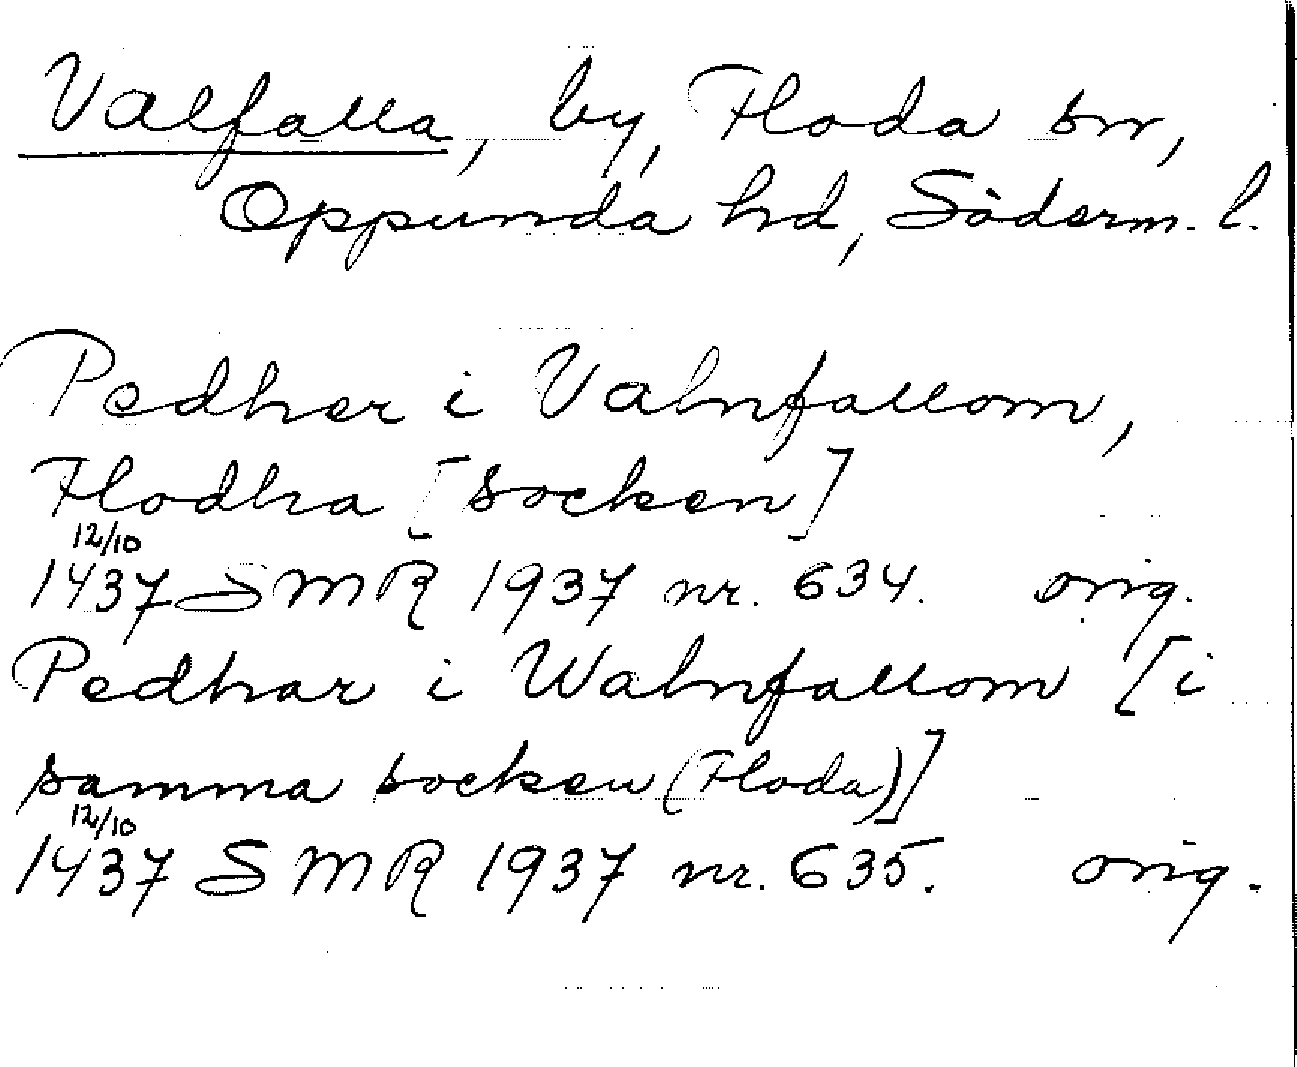 Valfalla, by, Floda sn,
Oppunda hd, Söderm. l.
Pedher i Valnfallom,
Flodha [socken]
12/10
1437 SMR 1937 nr. 634. orig.
Pedhar i Walnfallom [i
samma socken (Floda)]
12/10
1437 SMR 1937 nr. 635. orig.